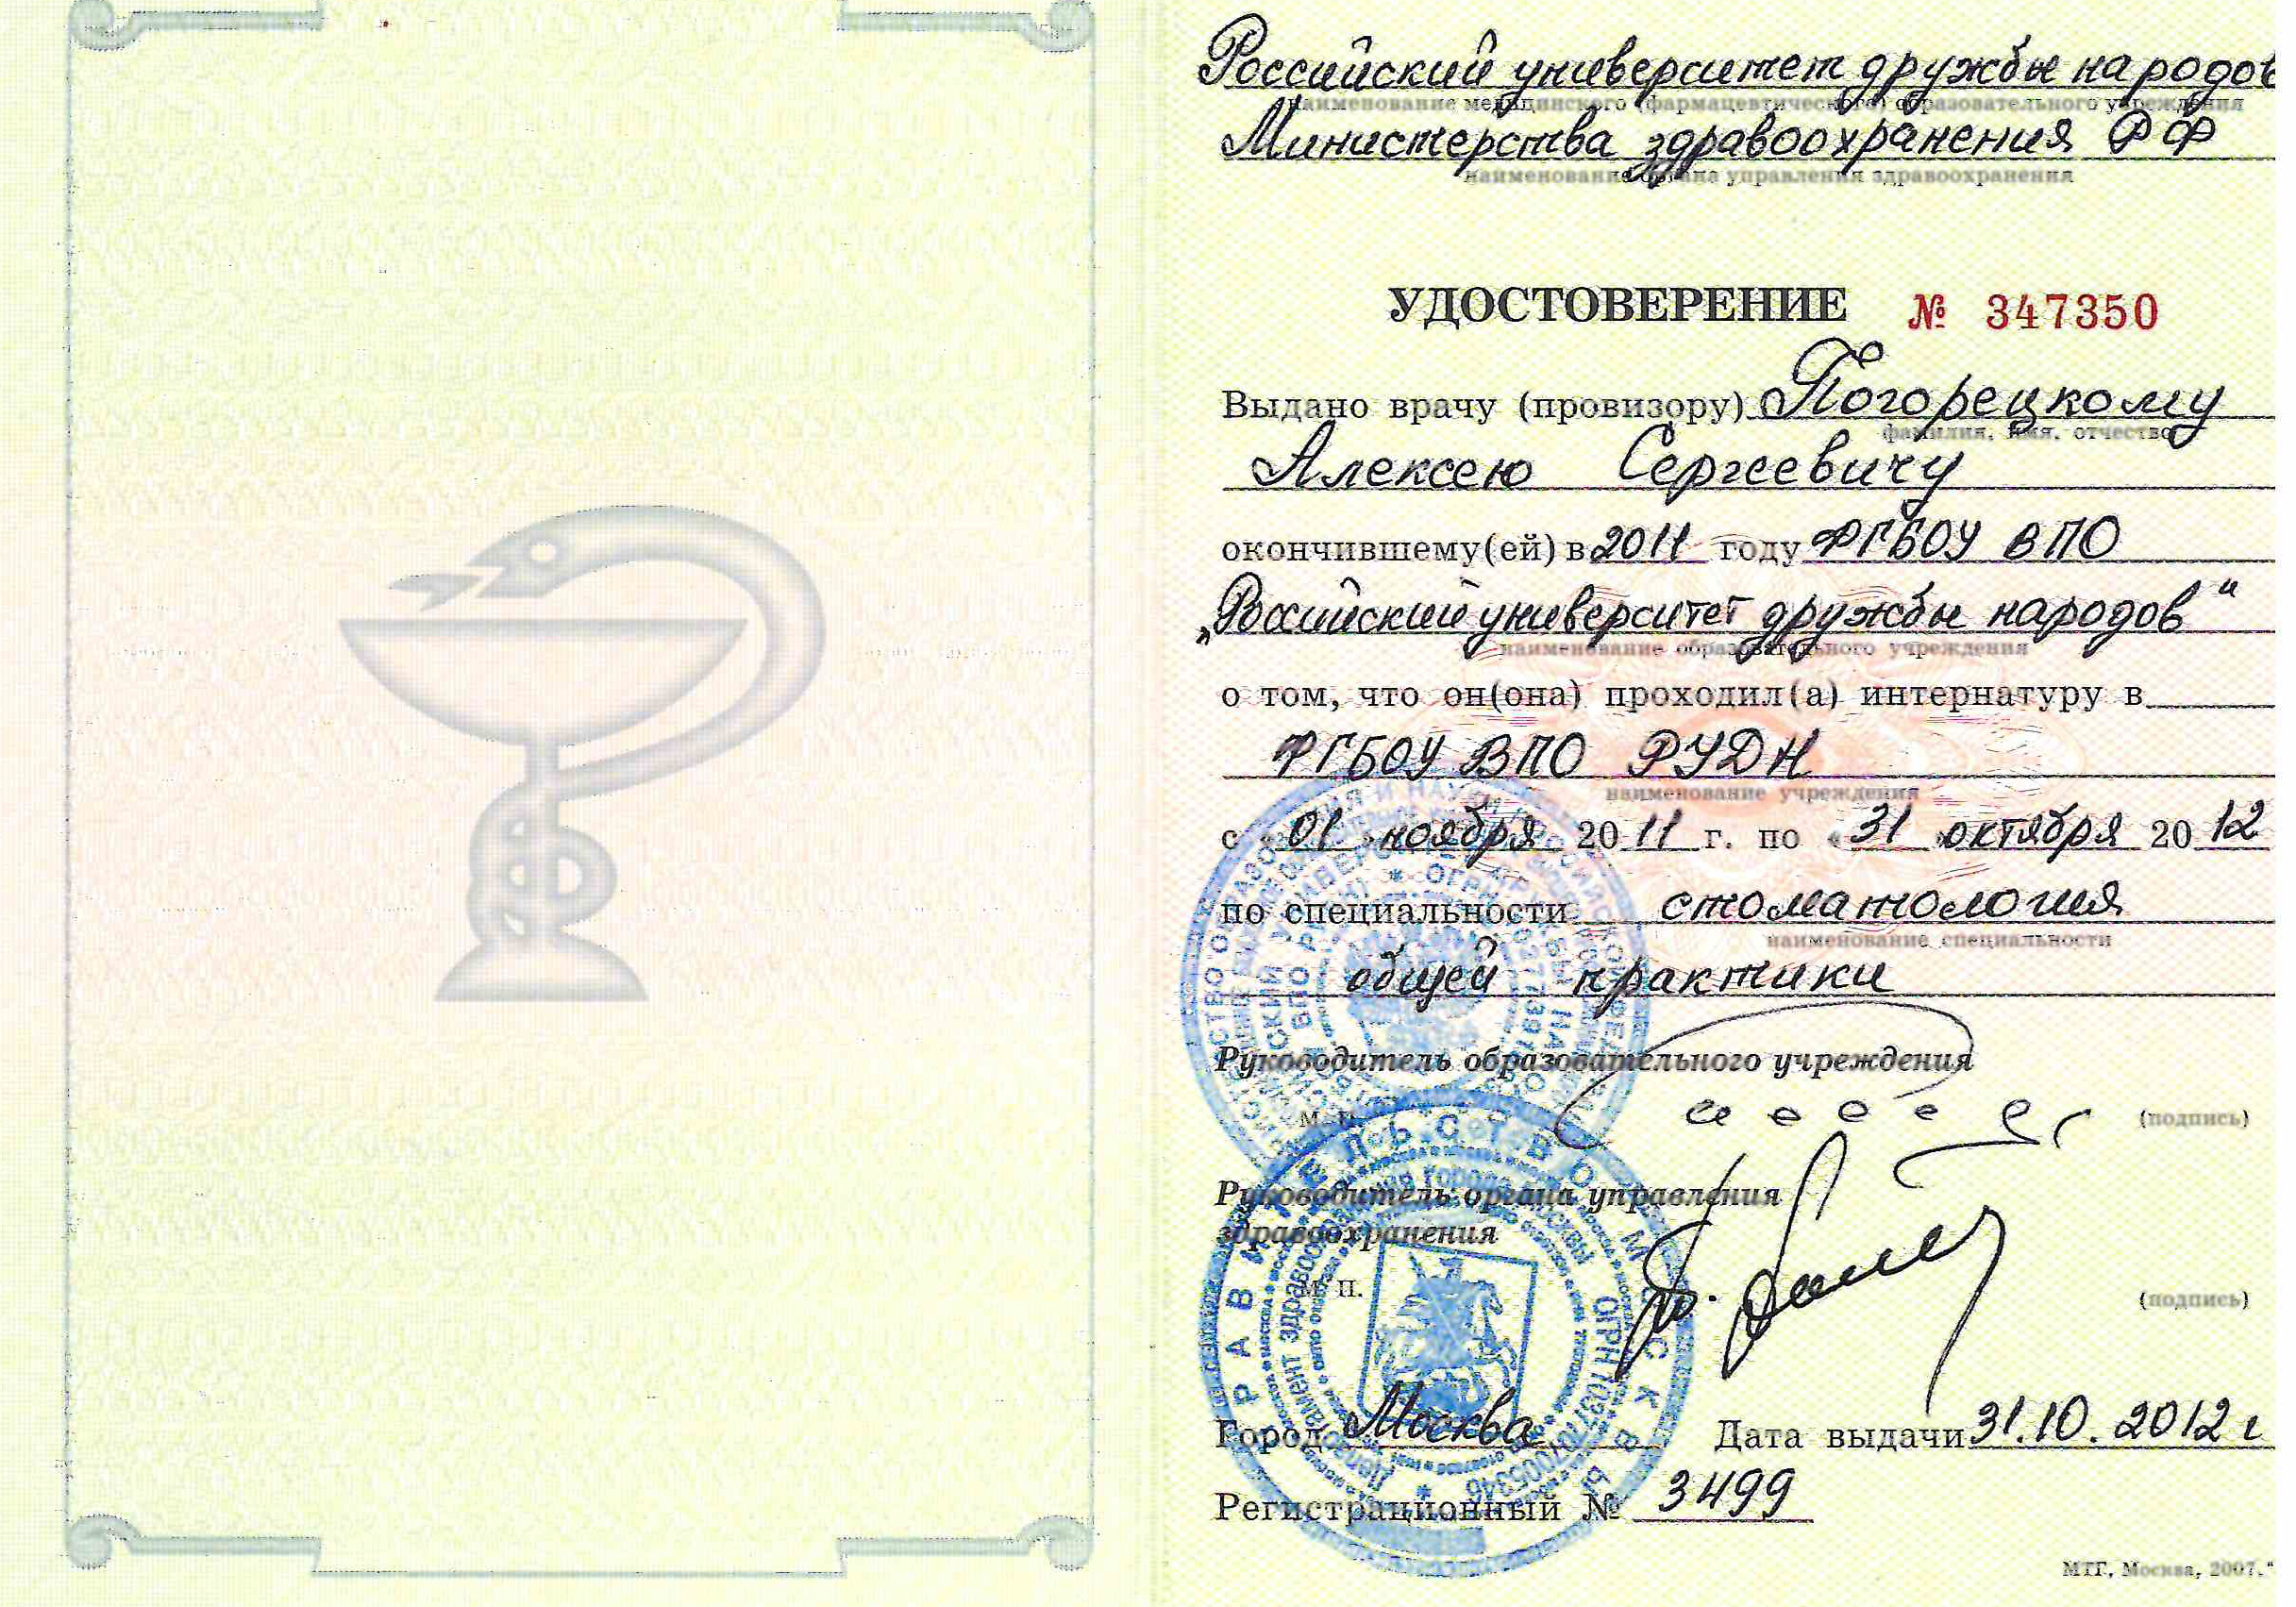 Российский университет дружбы народов
наименование медицинского (фармацевтического) образовательного учреждения
Министерства здравоохранения РФ
наименование органа управления здравоохранения
УДОСТОВЕРЕНИЕ № 347350
Выдано врачу (провизору) Погорецкому
фамилия, имя, отчество
Алексею Сергеевичу
окончившему(ей) в 2011 году ФГБОУ ВПО
„Российский университет дружбы народов“
наименование образовательного учреждения
о том, что он(она) проходил(а) интернатуру в
ФГБОУ ВПО РУДН
наименование учреждения
с «01» ноября 2011 г. по «31» октября 2012
по специальности стоматология
наименование специальности
общей практики
Руководитель образовательного учреждения
М. П.
(подпись)
Руководитель органа управления
здравоохранения
М. П.
(подпись)
ПРАВИТЕЛЬСТВО МОСКВЫ
Город Москва Дата выдачи 31.10.2012 г
Регистрационный № 3499
МТГ, Москва, 2007.